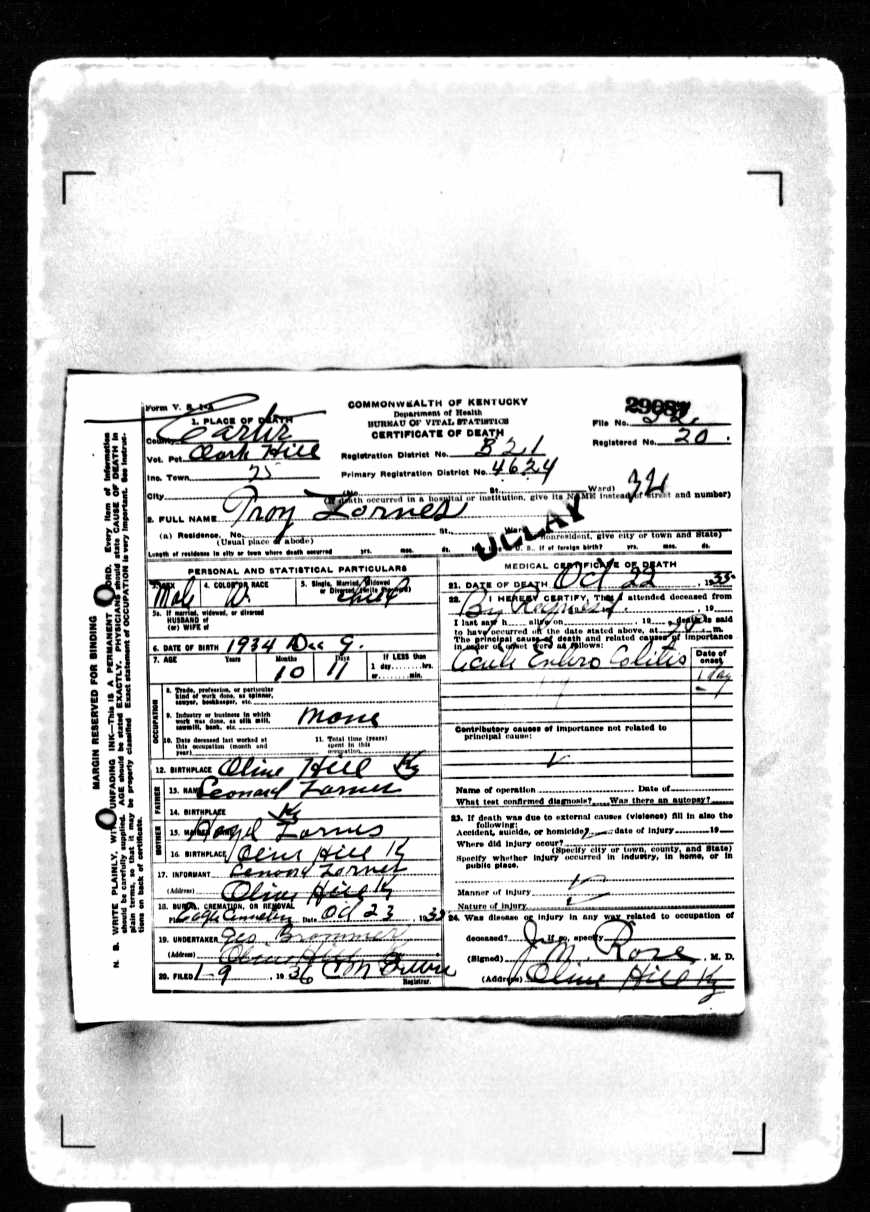 Form V. S. 1-A
COMMONWEALTH OF KENTUCKY
Department of Health
BUREAU OF VITAL STATISTICS
CERTIFICATE OF DEATH
29087
File No.
Registered No. 20
1. PLACE OF DEATH
County Carter
Vot. Pct. Clark Hill
Registration District No. 821
Inc. Town 75
Primary Registration District No. 4624
City No. St. Ward)
(If death occurred in a hospital or institution, give its NAME instead of street and number)
2. FULL NAME Troy Zornes
(a) Residence. No. St., Ward
(Usual place of abode) nonresident, give city or town and State)
Length of residence in city or town where death occurred yrs. mos. ds. U. S. if of foreign birth? yrs. mos. ds.
PERSONAL AND STATISTICAL PARTICULARS
3. SEX 4. COLOR OR RACE 5. Single, Married, Widowed
or Divorced (write the word)
Male W. Child
5a. If married, widowed, or divorced
HUSBAND of
(or) WIFE of
6. DATE OF BIRTH 1934 Dec 9.
7. AGE Years Months Days If LESS than
1 day hrs.
or min.
10 11
OCCUPATION
8. Trade, profession, or particular
kind of work done, as spinner,
sawyer, bookkeeper, etc.
9. Industry or business in which
work was done, as silk mill,
sawmill, bank, etc.
None
10. Date deceased last worked at
this occupation (month and
year)
11. Total time (years)
spent in this
occupation
12. BIRTHPLACE Olive Hill Ky
FATHER
13. NAME Leonard Zornes
14. BIRTHPLACE Ky
MOTHER
15. MAIDEN NAME Hazel Zornes
16. BIRTHPLACE Olive Hill Ky
17. INFORMANT Lenord Zornes
(Address) Olive Hill Ky
18. BURIAL, CREMATION, OR REMOVAL
Cemetery Date Oct 23 1935
19. UNDERTAKER Geo Brammer
(Address) Olive Hill
20. FILED 1-9, 1936
Registrar.
MEDICAL CERTIFICATE OF DEATH
21. DATE OF DEATH Oct 22, 1935
22. I HEREBY CERTIFY, That I attended deceased from
, 19
I last saw h alive on , 19 , death is said
to have occurred on the date stated above, at m.
The principal cause of death and related causes of importance
in order of onset were as follows:
Date of
onset
Acute Entero Colitis 1 day
Contributory causes of importance not related to
principal cause:
Name of operation Date of
What test confirmed diagnosis? Was there an autopsy?
23. If death was due to external causes (violence) fill in also the
following:
Accident, suicide, or homicide? date of injury 19
Where did injury occur?
(Specify city or town, county, and State)
Specify whether injury occurred in industry, in home, or in
public place.
Manner of injury
Nature of injury
24. Was disease or injury in any way related to occupation of
deceased? If so, specify
(Signed) J. M. Rose, M. D.
(Address) Olive Hill Ky
MARGIN RESERVED FOR BINDING
N. B. WRITE PLAINLY, WITH UNFADING INK—THIS IS A PERMANENT RECORD. Every item of information
should be carefully supplied. AGE should be stated EXACTLY. PHYSICIANS should state CAUSE OF DEATH in
plain terms, so that it may be properly classified. Exact statement of OCCUPATION is very important. See instruc-
tions on back of certificate.